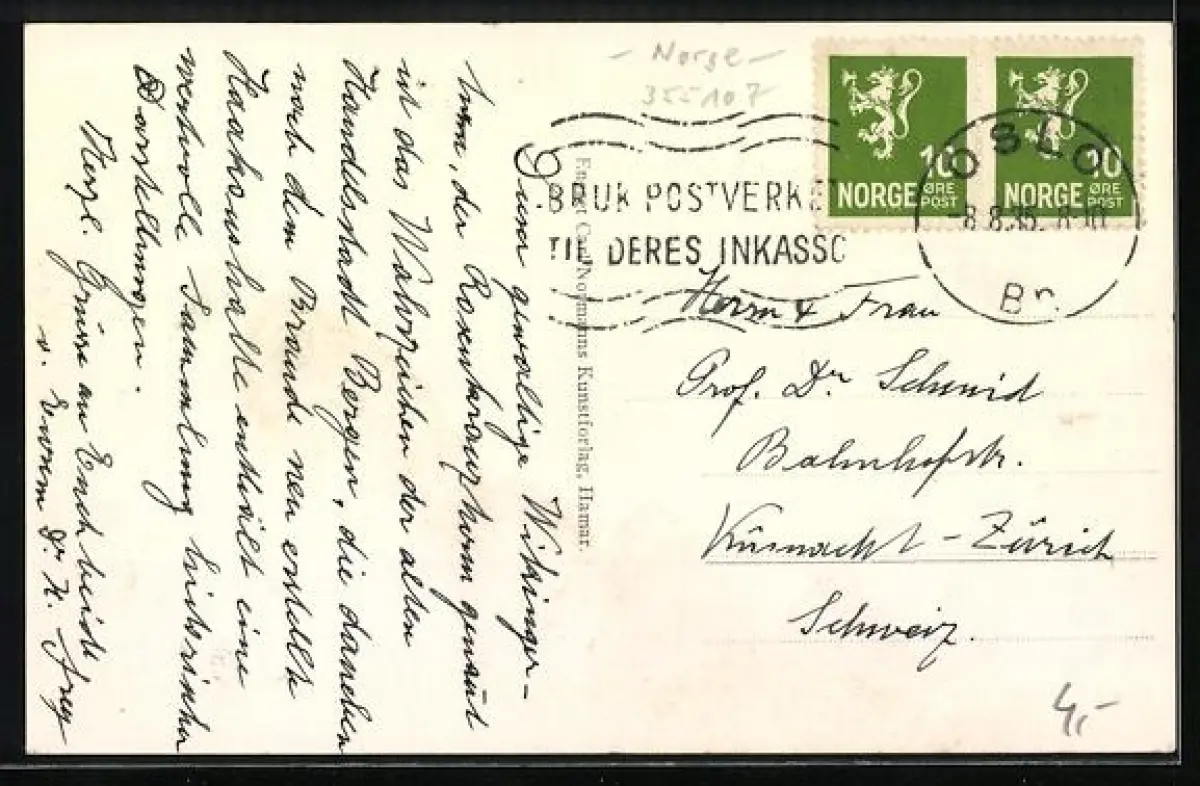 - Norge -
355107
NORGE 10 ØRE POST
NORGE 10 ØRE POST
BRUK POSTVERKE
TIL DERES INKASSO
OSLO
-8.8.35. 8-10
Br.
Eneret Carl Normanns Kunstforlag, Hamar.
Dieser gewaltige Wikinger-
turm, der Rosenkrantzturm genannt
ist das Wahrzeichen der alten
Handelsstadt Bergen, die daneben
nach dem Brande neu erstellte
Haakonshalle enthält eine
wertvolle Sammlung historischer
Darstellungen.
Herzl. Grüsse an Euch beide
v. Eurem Dr. H. Frey
Herrn & Frau
Prof. Dr Schmid
Bahnhofstr.
Küsnacht - Zürich
Schweiz.
4,-